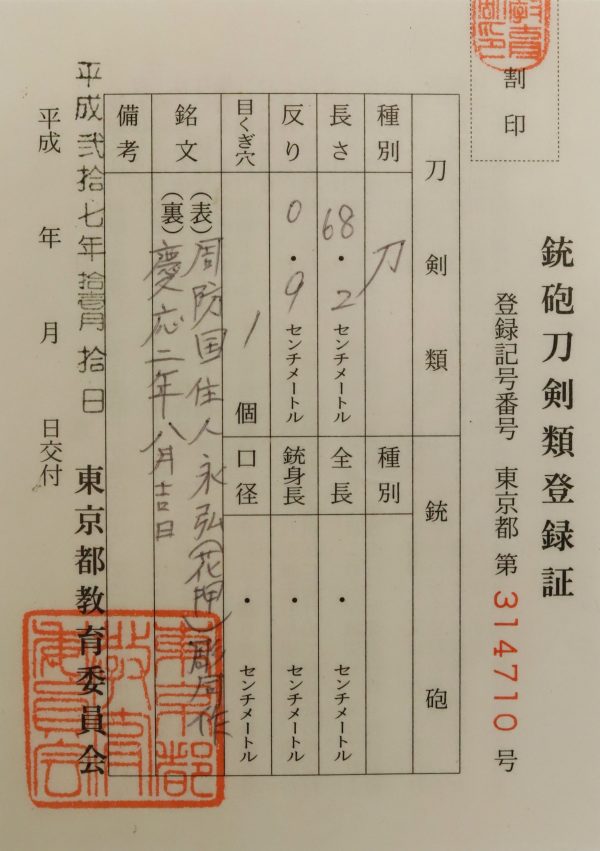 銃砲刀剣類登録証
割印
登録記号番号 東京都 第 314710 号
刀剣類 銃砲
種別 刀 種別
長さ 68・2 センチメートル 全長 ・ センチメートル
反り 0・9 センチメートル 銃身長 ・ センチメートル
目くぎ穴 1 個 口径 ・ センチメートル
銘文 (表) 周防国住人永弘(花押)彫同作
(裏) 慶応二年八月吉日
備考
平成弐拾七年拾壱月拾日
平成 年 月 日交付
東京都教育委員会
東京都教育委員会